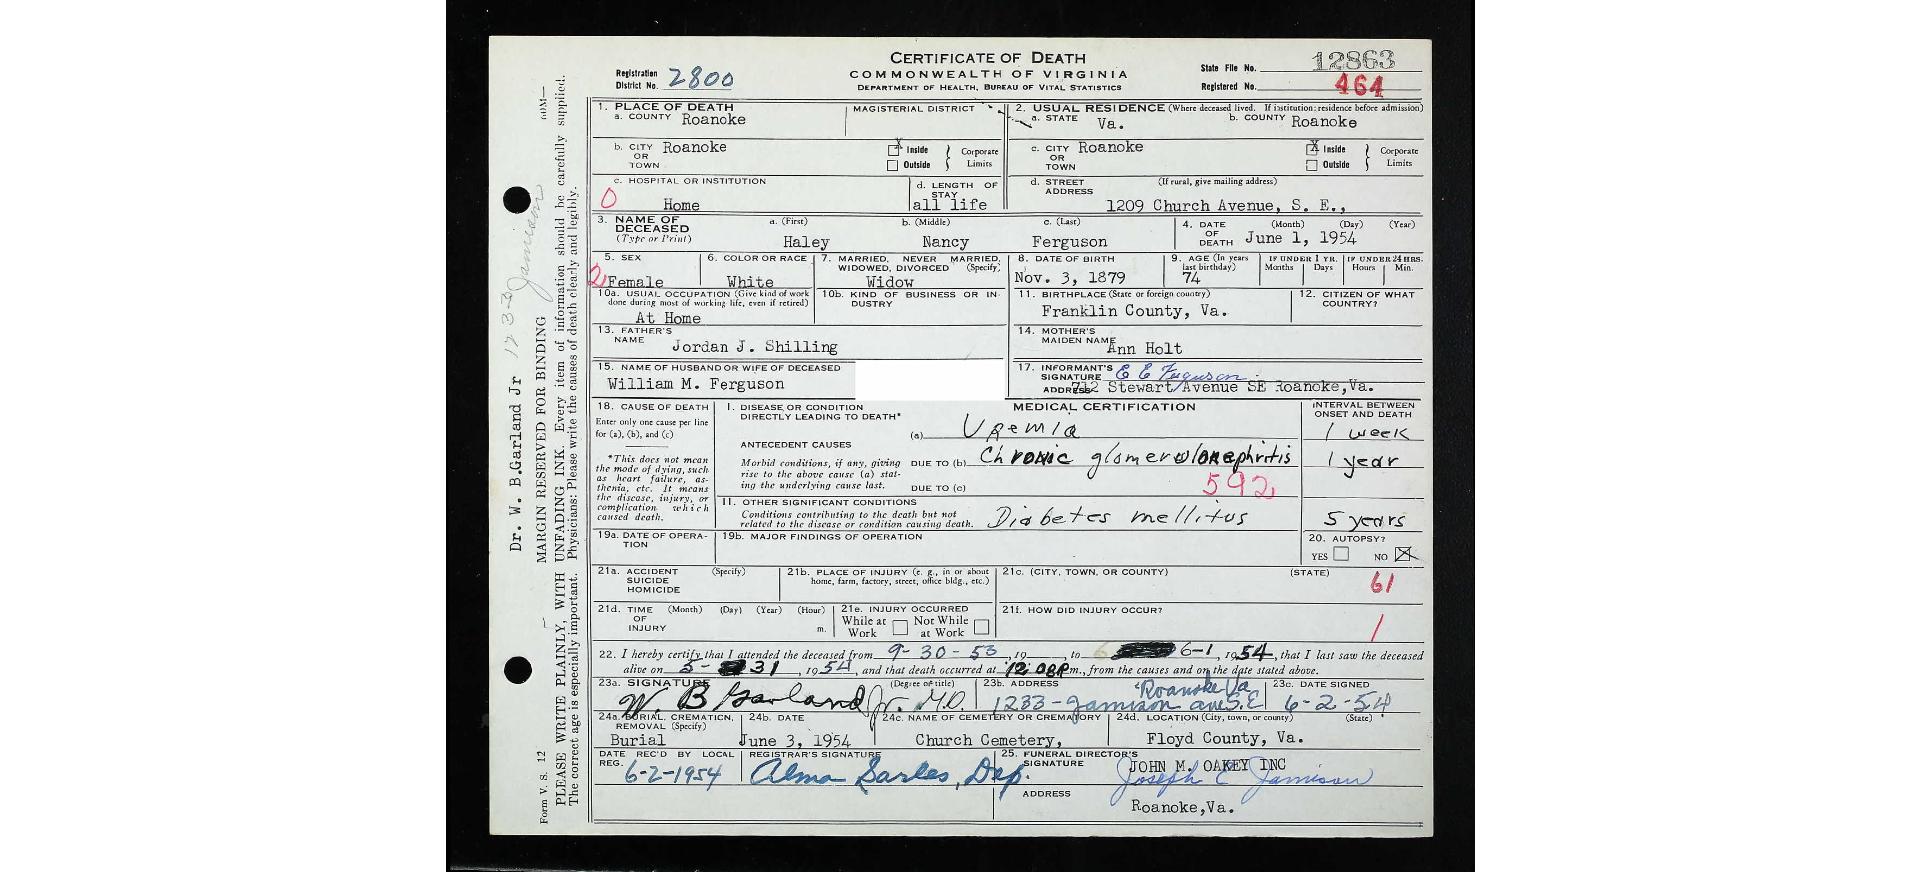 CERTIFICATE OF DEATH
COMMONWEALTH OF VIRGINIA
DEPARTMENT OF HEALTH, BUREAU OF VITAL STATISTICS
Registration District No. 2800
State File No. 12863
Registered No. 464
1. PLACE OF DEATH
a. COUNTY Roanoke
MAGISTERIAL DISTRICT
2. USUAL RESIDENCE (Where deceased lived. If institution: residence before admission)
a. STATE Va.
b. COUNTY Roanoke
b. CITY OR TOWN Roanoke
X Inside
Outside
Corporate Limits
c. CITY OR TOWN Roanoke
X Inside
Outside
Corporate Limits
c. HOSPITAL OR INSTITUTION
0 Home
d. LENGTH OF STAY
all life
d. STREET ADDRESS
(If rural, give mailing address)
1209 Church Avenue, S. E.,
3. NAME OF DECEASED
(Type or Print)
a. (First)
Haley
b. (Middle)
Nancy
c. (Last)
Ferguson
4. DATE OF DEATH
(Month) (Day) (Year)
June 1, 1954
5. SEX
2 Female
6. COLOR OR RACE
White
7. MARRIED, NEVER MARRIED, WIDOWED, DIVORCED (Specify)
Widow
8. DATE OF BIRTH
Nov. 3, 1879
9. AGE (In years last birthday)
74
IF UNDER 1 YR.
Months Days
IF UNDER 24 HRS.
Hours Min.
10a. USUAL OCCUPATION (Give kind of work done during most of working life, even if retired)
At Home
10b. KIND OF BUSINESS OR INDUSTRY
11. BIRTHPLACE (State or foreign country)
Franklin County, Va.
12. CITIZEN OF WHAT COUNTRY?
13. FATHER'S NAME
Jordan J. Shilling
14. MOTHER'S MAIDEN NAME
Ann Holt
15. NAME OF HUSBAND OR WIFE OF DECEASED
William M. Ferguson
17. INFORMANT'S SIGNATURE E E Ferguson
ADDRESS 712 Stewart Avenue SE Roanoke,Va.
18. CAUSE OF DEATH
Enter only one cause per line for (a), (b), and (c)
*This does not mean the mode of dying, such as heart failure, asthenia, etc. It means the disease, injury, or complication which caused death.
MEDICAL CERTIFICATION
INTERVAL BETWEEN ONSET AND DEATH
I. DISEASE OR CONDITION DIRECTLY LEADING TO DEATH*
(a) Uremia
1 week
ANTECEDENT CAUSES
Morbid conditions, if any, giving rise to the above cause (a) stating the underlying cause last.
DUE TO (b) Chronic glomerulonephritis
1 year
DUE TO (c)
592
II. OTHER SIGNIFICANT CONDITIONS
Conditions contributing to the death but not related to the disease or condition causing death.
Diabetes mellitus
5 years
19a. DATE OF OPERATION
19b. MAJOR FINDINGS OF OPERATION
20. AUTOPSY?
YES NO X
21a. ACCIDENT SUICIDE HOMICIDE
(Specify)
21b. PLACE OF INJURY (e. g., in or about home, farm, factory, street, office bldg., etc.)
21c. (CITY, TOWN, OR COUNTY)
(STATE)
61
21d. TIME OF INJURY
(Month) (Day) (Year) (Hour)
m.
21e. INJURY OCCURRED
While at Work
Not While at Work
21f. HOW DID INJURY OCCUR?
1
22. I hereby certify that I attended the deceased from 9-30-53, 19__, to 6-1, 1954, that I last saw the deceased
alive on 5-31, 1954, and that death occurred at m., from the causes and on the date stated above.
23a. SIGNATURE
(Degree or title)
W. B Garland Jr. M.D.
23b. ADDRESS
Roanoke Va
1233-Jamison ave S.E
23c. DATE SIGNED
6-2-54
24a. BURIAL, CREMATION, REMOVAL (Specify)
Burial
24b. DATE
June 3, 1954
24c. NAME OF CEMETERY OR CREMATORY
Church Cemetery,
24d. LOCATION (City, town, or county) (State)
Floyd County, Va.
DATE REC'D BY LOCAL REG.
6-2-1954
REGISTRAR'S SIGNATURE
Alma Sarles, Dep.
25. FUNERAL DIRECTOR'S SIGNATURE
JOHN M. OAKEY INC
Joseph E Jamison
ADDRESS
Roanoke,Va.
Dr. W. B.Garland Jr
Jamison
MARGIN RESERVED FOR BINDING
Form V. S. 12
PLEASE WRITE PLAINLY, WITH UNFADING INK. Every item of information should be carefully supplied.
The correct age is especially important. Physicians: Please write the causes of death clearly and legibly.